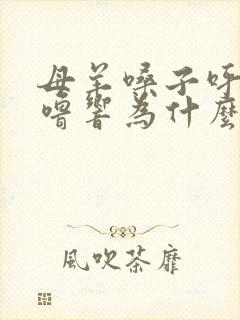 母羊嗓子呼
噜響為什麼
風吹荼靡